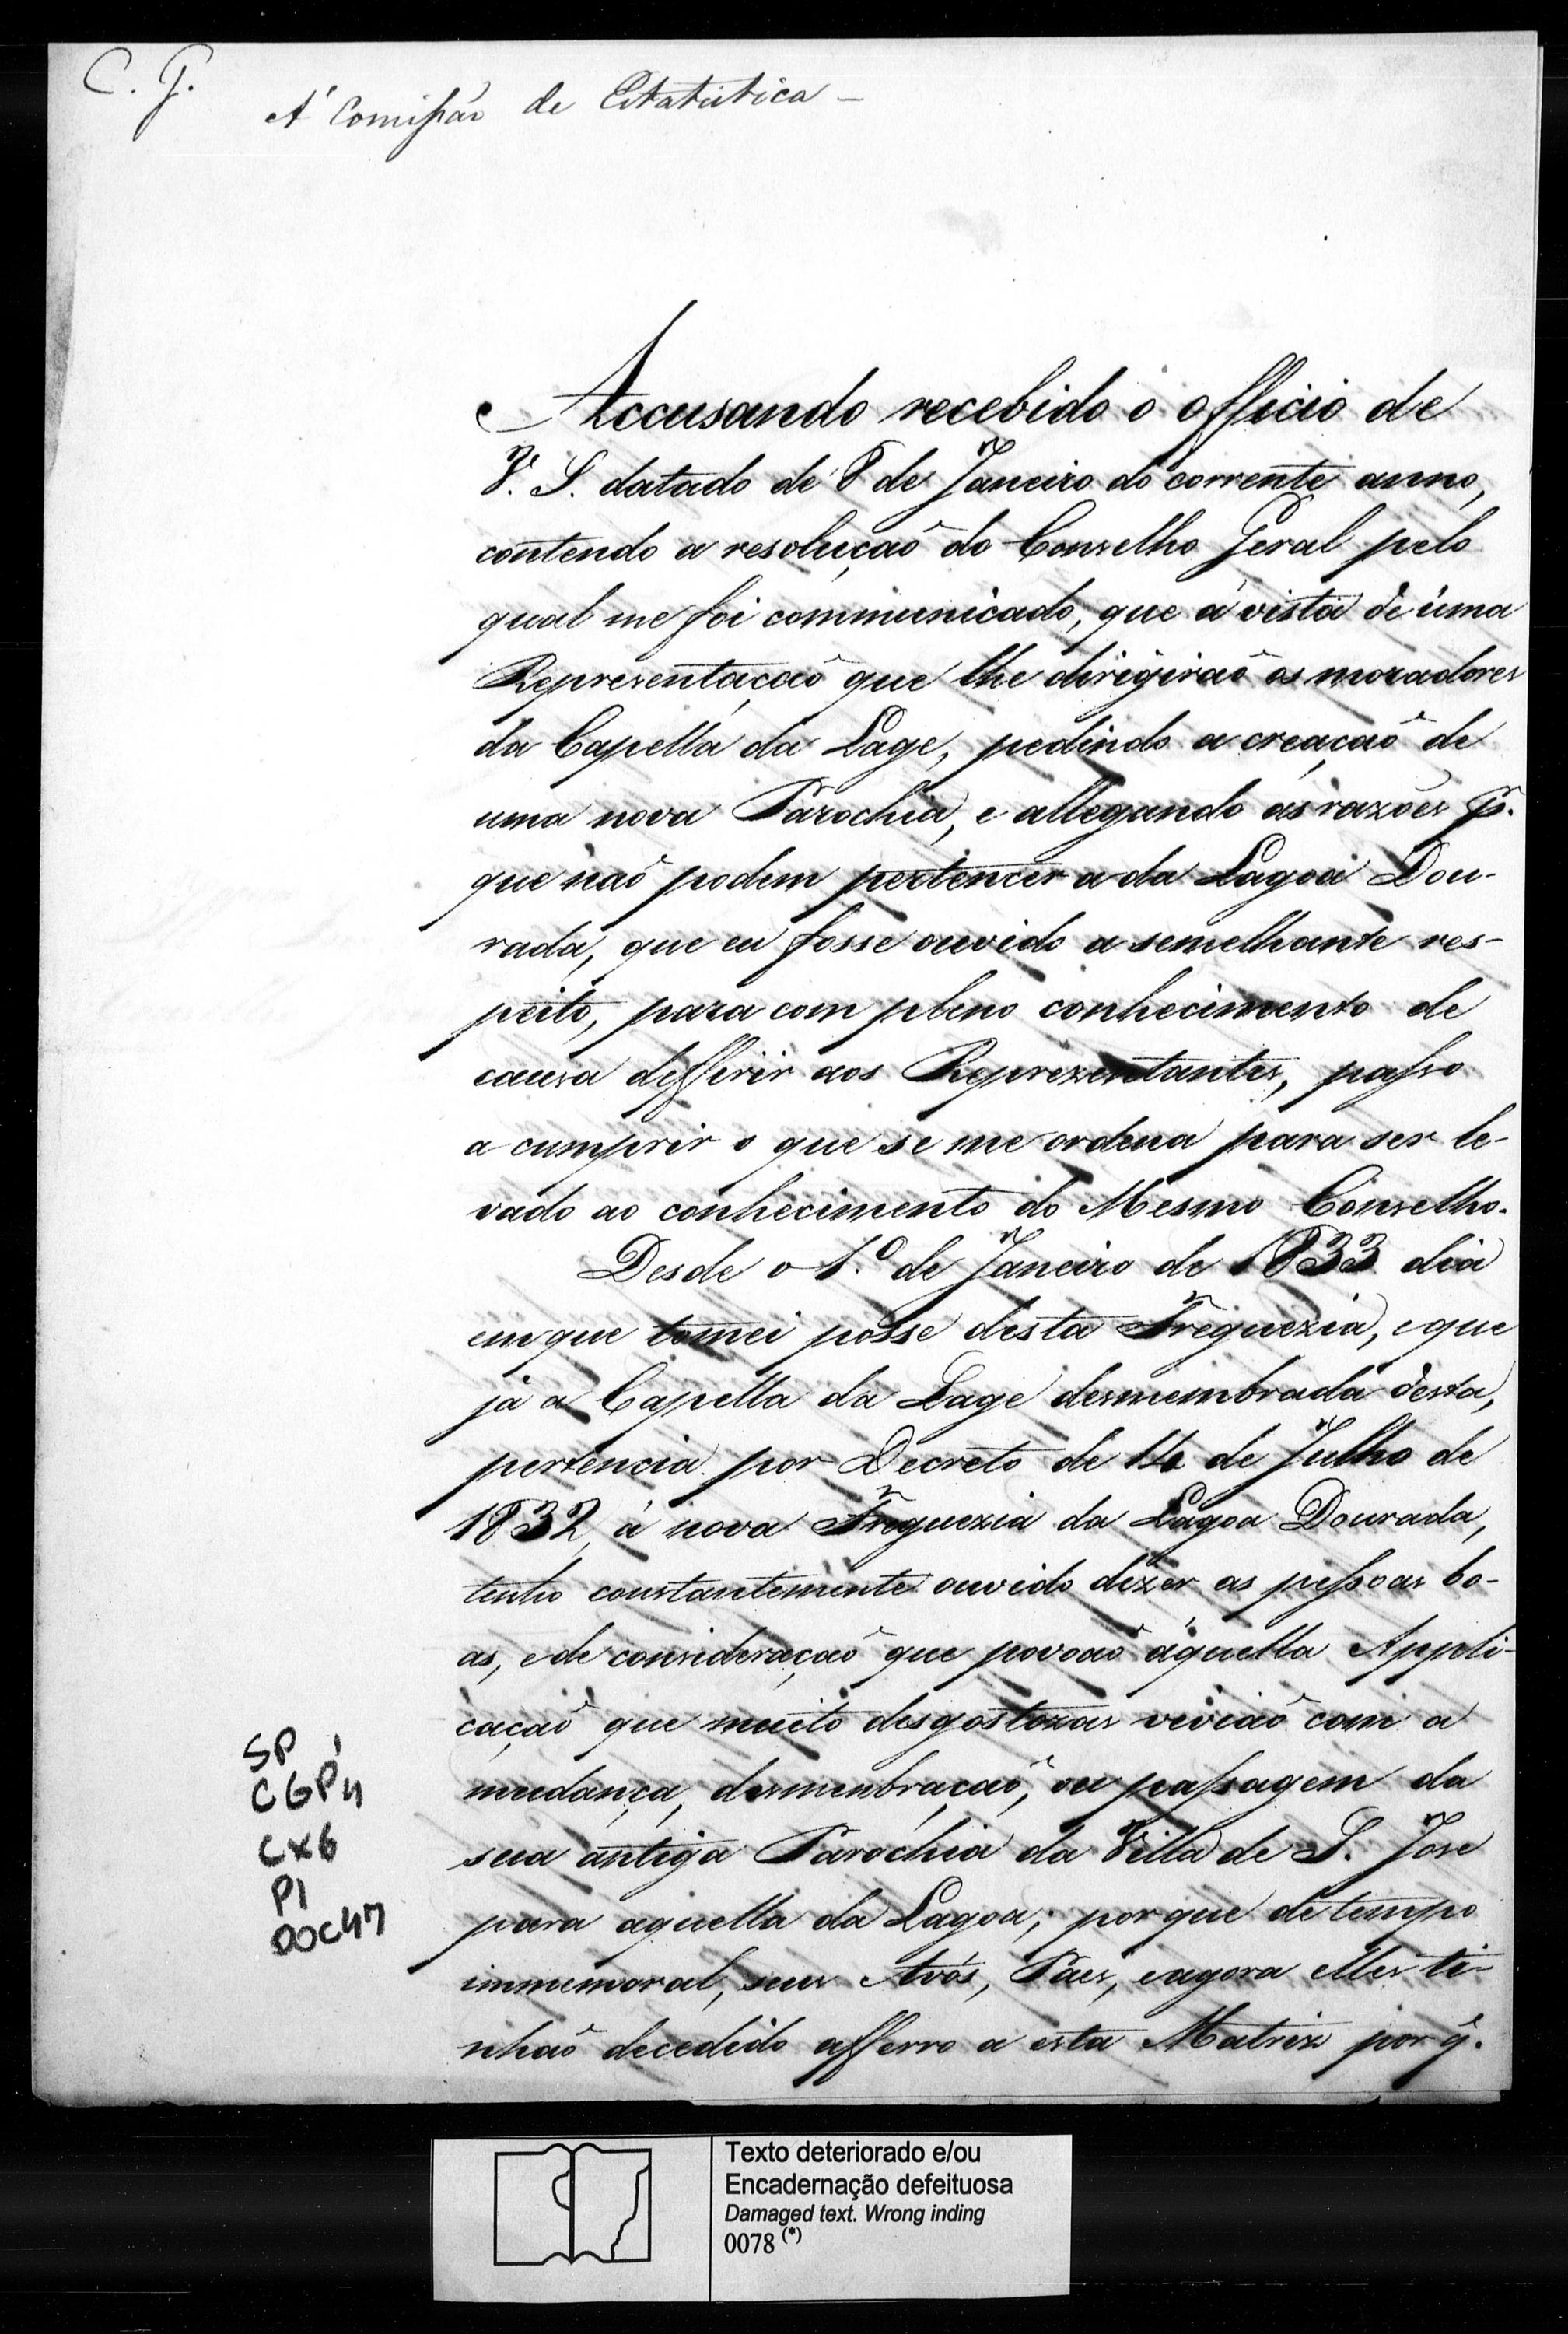 C. G.
Á Comissaõ de Estatistica —
Accusando recebido o officio de
V. S. datado de 8 de Janeiro do corrente anno,
contendo a resoluçaõ do Conselho Geral pelo
qual me foi communicado, que á vista de uma
Representaçaõ que lhe dirigiraõ os moradores
da Capella da Lage, pedindo a creaçaõ de
uma nova Parochia, e allegando as razões p.
que naõ podem pertencer a da Lagoa Dou-
rada, que eu fosse ouvido a semelhante res-
peito, para com pleno conhecimento de
causa differir aos Reprezentantes, passo
a cumprir o que se me ordena para ser le-
vado ao conhecimento do Mesmo Conselho.
Desde o 1.º de Janeiro de 1833 dia
em que tomei posse desta Freguezia, e que
já a Capella da Lage desmembrada desta,
pertencia por Decreto de 14 de Julho de
1832, á nova Freguezia da Lagoa Dourada,
tenho constantemente ouvido dizer as pessoas bo-
as, e de consideraçaõ que povoaõ áquella Appli-
caçaõ que muito desgostozas viviaõ com a
mudança, desmenbraçaõ, ou passagem da
sua antiga Parochia da Villa de S. Jose
para aquella da Lagoa; porque de tempo
immemoral, seus Avós, Paes, e agora elles ti-
nhaõ decedido afferro a esta Matriz por q̃.
SP
CGP4
CX6
P1
DOC47
Texto deteriorado e/ou
Encadernação defeituosa
Damaged text. Wrong inding
0078 (*)